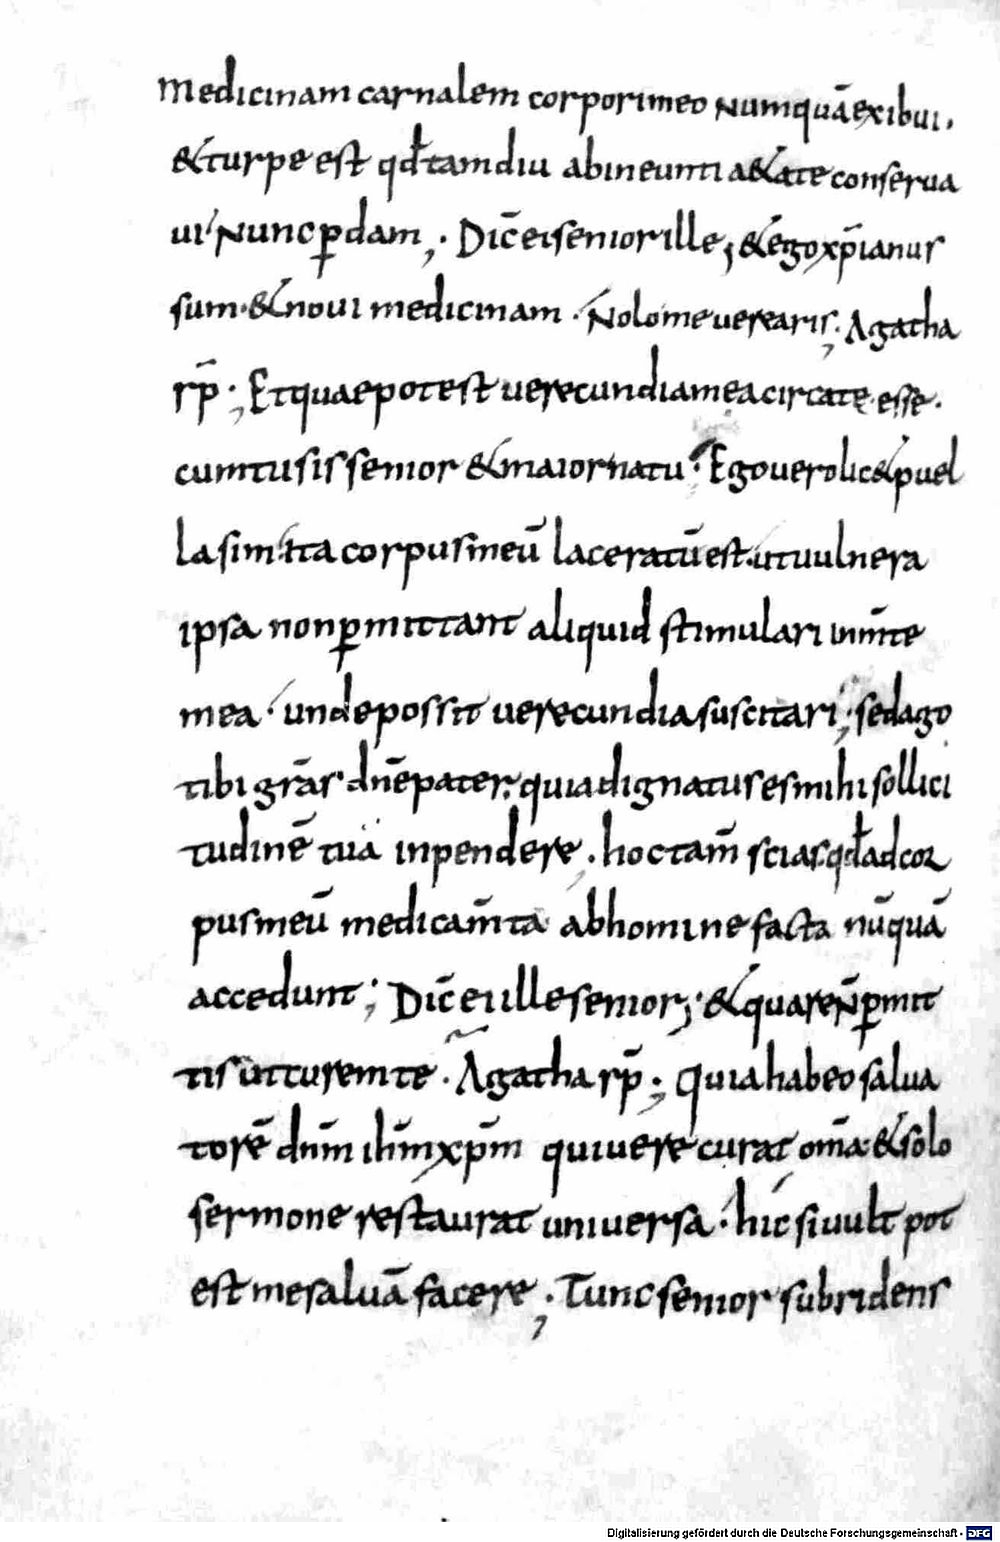 medicinam carnalem corpori meo numquā exibui.
& turpe est qđ tam diu ab ineunti a&ate conserua
ui nunc ꝑdam; Dic̄ ei senior ille; & ego xp̄ianus
sum. & noui medicinam. Nolo me uerearis; Agatha
rp̄; Et quae potest uerecundia mea circa te esse.
cum tu sis senior & maior natu. Ego uero lic& puel
la sim. ita corpus meū laceratū est. ut uulnera
ipsa non ꝑmittant aliquid stimulari in m̄te
mea. unde possit uerecundia suscitari; sed ago
tibi grās dnē pater, quia dignatus es mihi sollici
tudinē tuā inpendere; hoc tam̄ scias. qđ ad cor
pus meū medicam̄ta ab homine facta nūquā
accedunt; Dic̄ ei ille senior; & quare n̄ ꝑmit
tis ut curem te. Agatha rp̄; Quia habeo salua
torē dnm̄ ihm̄ xpm̄ qui uere curat om̄a. & solo
sermone restaurat uniuersa. hic si uult pot
est me saluā facere; Tunc senior subridens
Digitalisierung gefördert durch die Deutsche Forschungsgemeinschaft - DFG